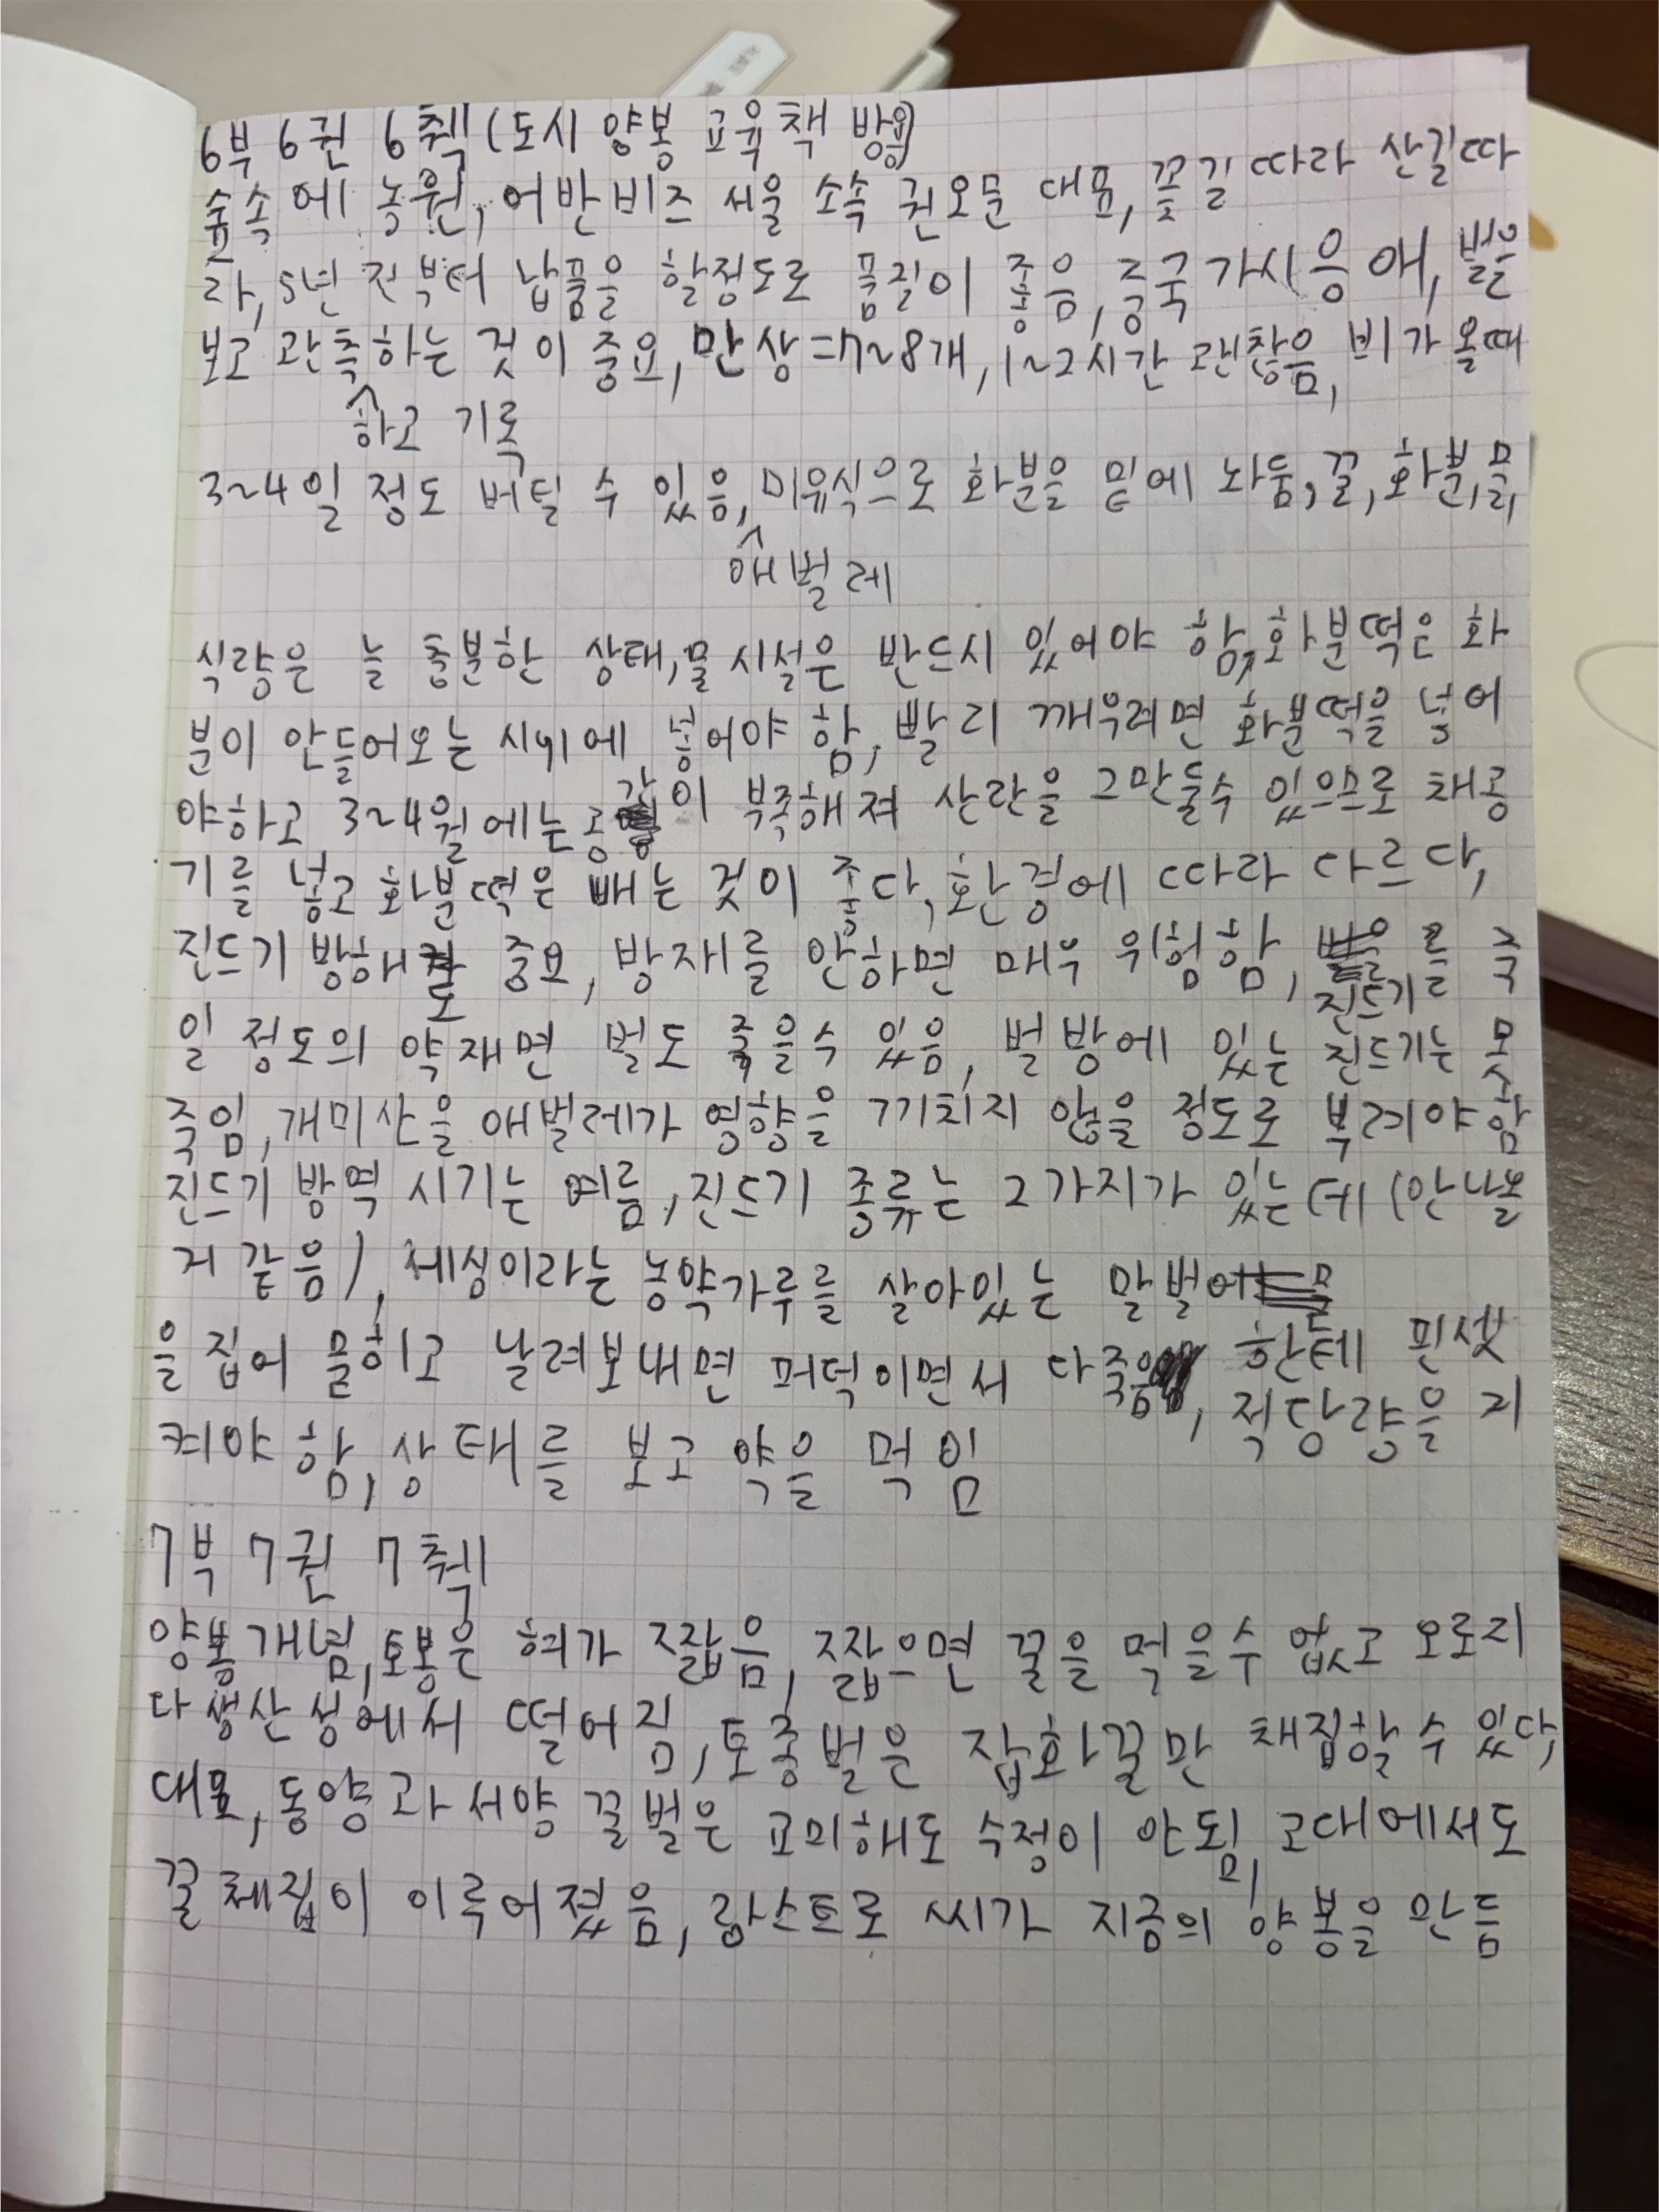 6부 6권 6췍(도시 양봉 교육책 받음)
숲속에 농원, 어반비즈 서울 소속 권오문 대표, 꽃길 따라 산길따
라, 5년 전부터 납품을 할정도로 품질이 좋음, 중국 가시응애, 벌을
보고 관측하는 것이 중요, 만상=7~8개, 1~2시간 괜찮음, 비가 올때
하고 기록
3~4일 정도 버틸 수 있음, 미유식으로 화분을 밑에 놔둠, 꿀, 화분, 물,
애벌레
식량은 늘 충분한 상태, 물 시설은 반드시 있어야 함, 화분떡은 화
분이 안들어오는 시기에 넣어야 함, 빨리 깨우려면 화분떡을 넣어
야하고 3~4월에는 공간이 부족해져 산란을 그만둘수 있으므로 채광
기를 넣고 화분떡은 빼는 것이 좋다, 환경에 따라 다르다,
진드기 방해도 중요, 방재를 안하면 매우 위험함, 진드기를 죽
일 정도의 약재면 벌도 죽을수 있음, 벌방에 있는 진드기는 못
죽임, 개미산을 애벌레가 영향을 끼치지 않을 정도로 부려야함
진드기 방역 시기는 여름, 진드기 종류는 2가지가 있는데 (안나올
거 같음), 세싱이라는 농약가루를 살아있는 말벌
한테 핀셋
을 집어 뭍히고 날려보내면 퍼덕이면서 다죽음, 적당량을 지
켜야 함, 상태를 보고 약을 먹임
7부 7권 7췍
양봉개념, 토봉은 혀가 짧음, 짧으면 꿀을 먹을수 없고 오로지
다 생산성에서 떨어짐, 토종벌은 잡화꿀만 채집할 수 있다,
대표, 동양과 서양 꿀벌은 교미해도 수정이 안됨, 고대에서도
꿀 체집이 이루어졌음, 랑스트로 씨가 지금의 양봉을 만듬